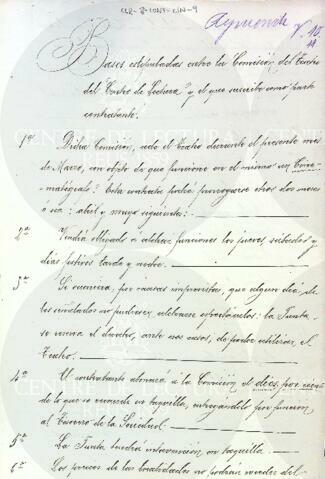 CLR-8-CONT-CIN-9
Bases estipuladas entre la Comisión del Teatro
del "Centro de Lectura" y el que suscribe como parte
contratante.
1ª Dicha Comision, cede el Teatro durante el presente mes
de Marzo, con objeto de que funcione en el mismo un Cine-
matógrafo: Esta contrata podrá prorrogarse otros dos meses
ó sea: abril y mayo siguiente:
2ª Vendrá obligado á celebrar funciones los jueves, sábados y
días festivos tarde y noche.
3ª Si ocurriera, por causas imprevistas, que algun día de
los señalados no pudiesen celebrarse espectáculos: la Junta
se reserva el derecho, ante esos casos, de poder utilizar el
Teatro.
4ª El contratante abonará á la Comision el diez por ciento
de lo que se recaude en taquilla, entregándolo por funcion
al Tesorero de la Sociedad.
5ª La Junta tendrá intervención en taquilla.
6ª Los precios de las localidades no podrán exceder del